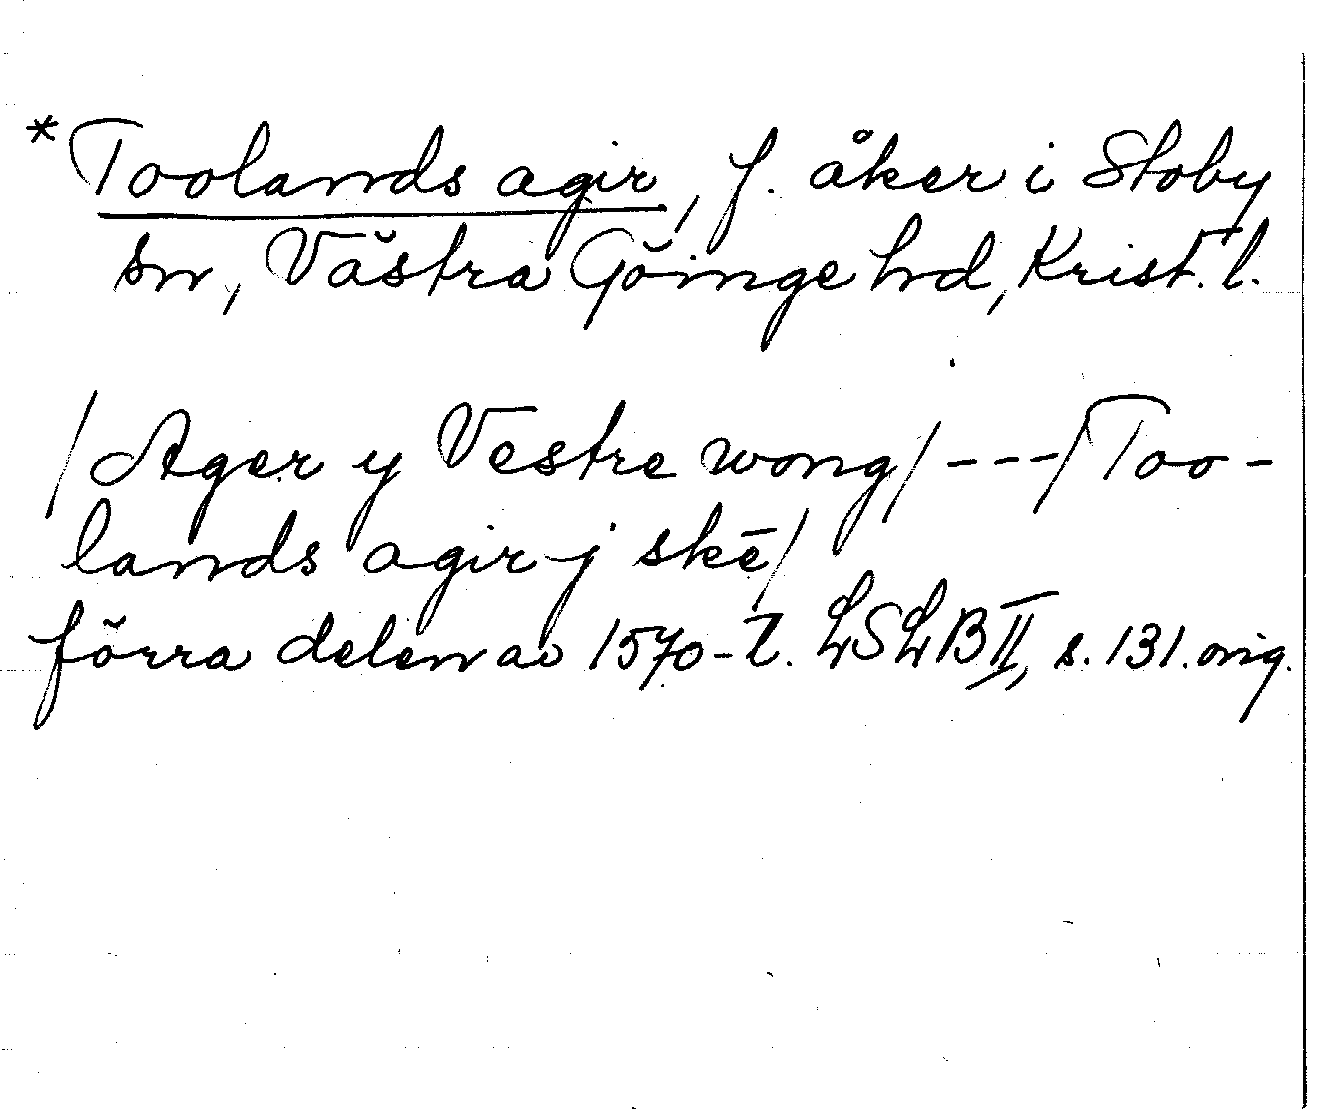 *Toolands agir, f. åker i Stoby
sn, Västra Göinge hd, Krist. l.
/Ager y Vestre wong/ - - - /Too-
lands agir j skē/
förra delen av 1570-t. LSLB II, s. 131. orig.